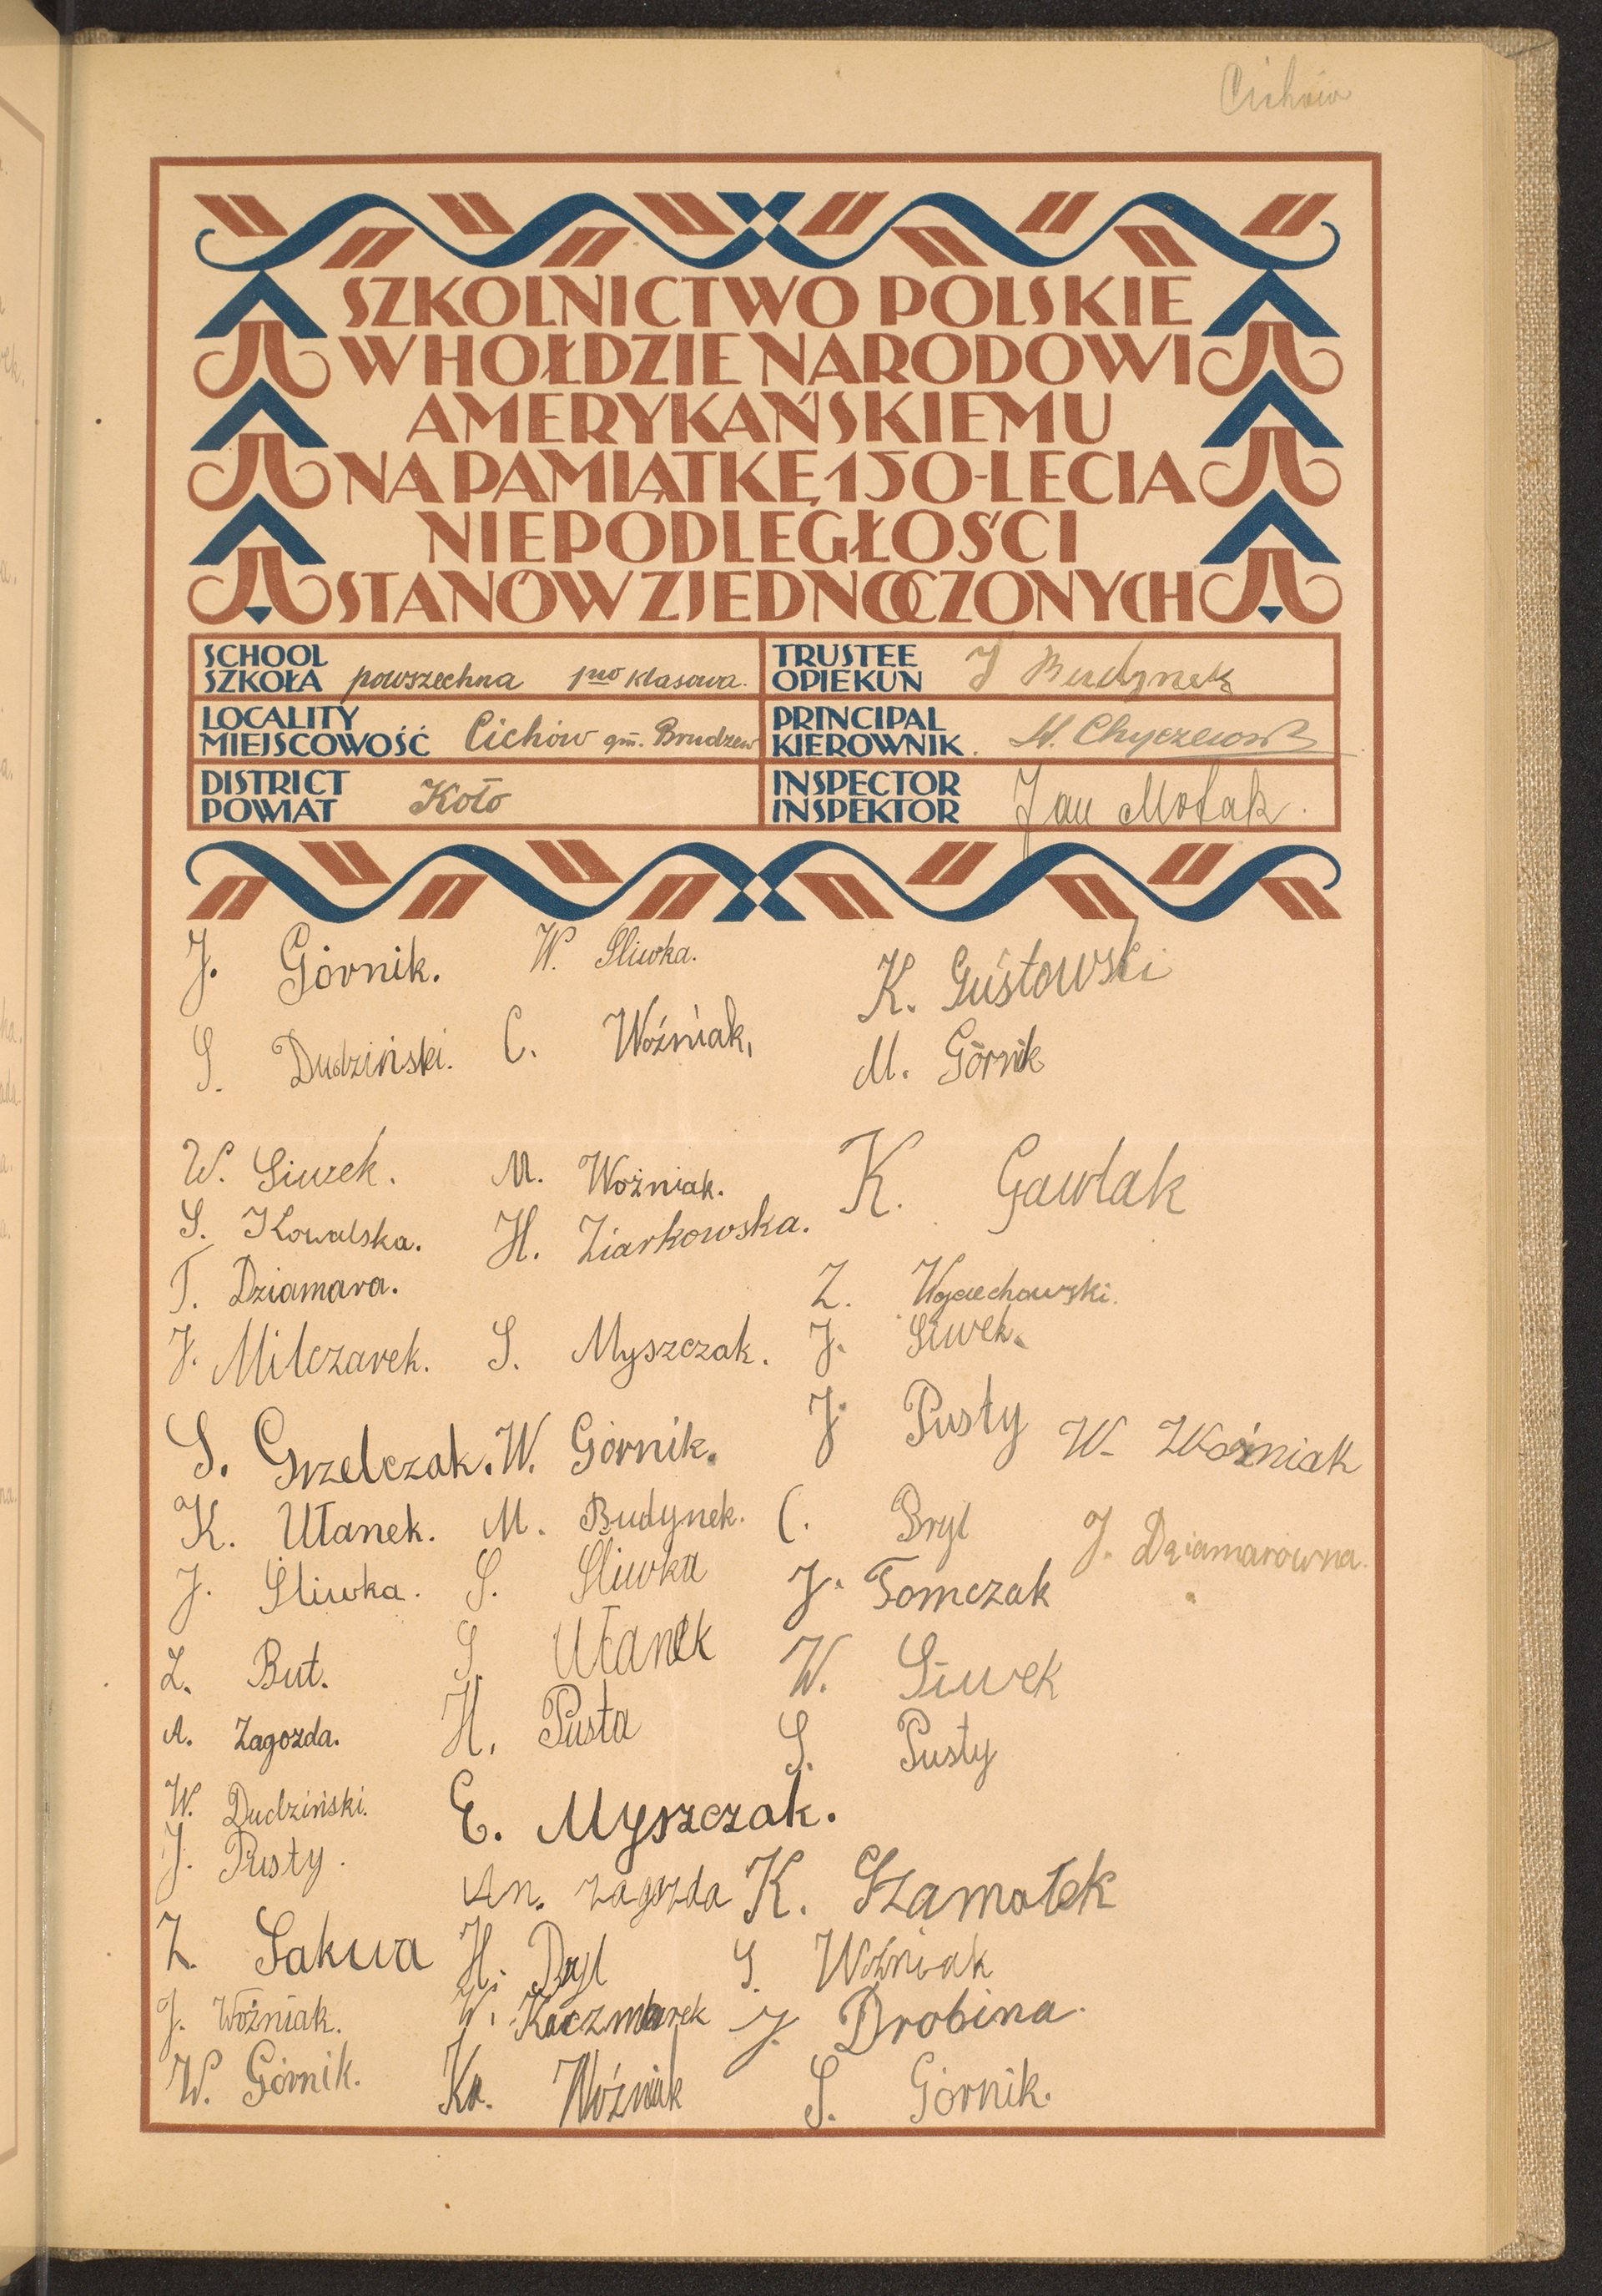 Cichów
SZKOLNICTWO POLSKIE
W HOŁDZIE NARODOWI
AMERYKAŃSKIEMU
NA PAMIĄTKĘ 150-LECIA
NIEPODLEGŁOŚCI
STANÓW ZJEDNOCZONYCH
SCHOOL
SZKOŁA powszechna 1no klasowa.
TRUSTEE
OPIEKUN J Budynek
LOCALITY
MIEJSCOWOŚĆ Cichów gm. Brudzew
PRINCIPAL
KIEROWNIK.
DISTRICT
POWIAT Koło
INSPECTOR
INSPEKTOR Jan Motak.
J. Górnik. W. Śliwka. K. Gustowski
S. Dudziński. C. Woźniak, M. Górnik
W. Siwek. M. Woźniak. K. Gawłak
S. Kowalska. H. Ziarkowska.
T. Dziamara. Z. Wojciechowski.
J. Milczarek. S. Myszczak. J. Siwek.
S. Grzelczak. W. Górnik. J. Pusty W. Woźniak
K. Ułanek. M. Budynek. C. Bryl J. Dziamarówna.
J. Śliwka. S. Śliwka J. Tomczak
Z. But. S. Ułanek W. Siwek
A. Zagozda. H. Pusta S. Pusty
W. Dudziński. E. Myszczak.
J. Pusty. An. Zagozda K. Szamałek
Z. Sakwa H. Bryl S. Woźniak
J. Woźniak. W. Kaczmarek J. Drobina.
W. Górnik. Ka. Woźniak S. Górnik.